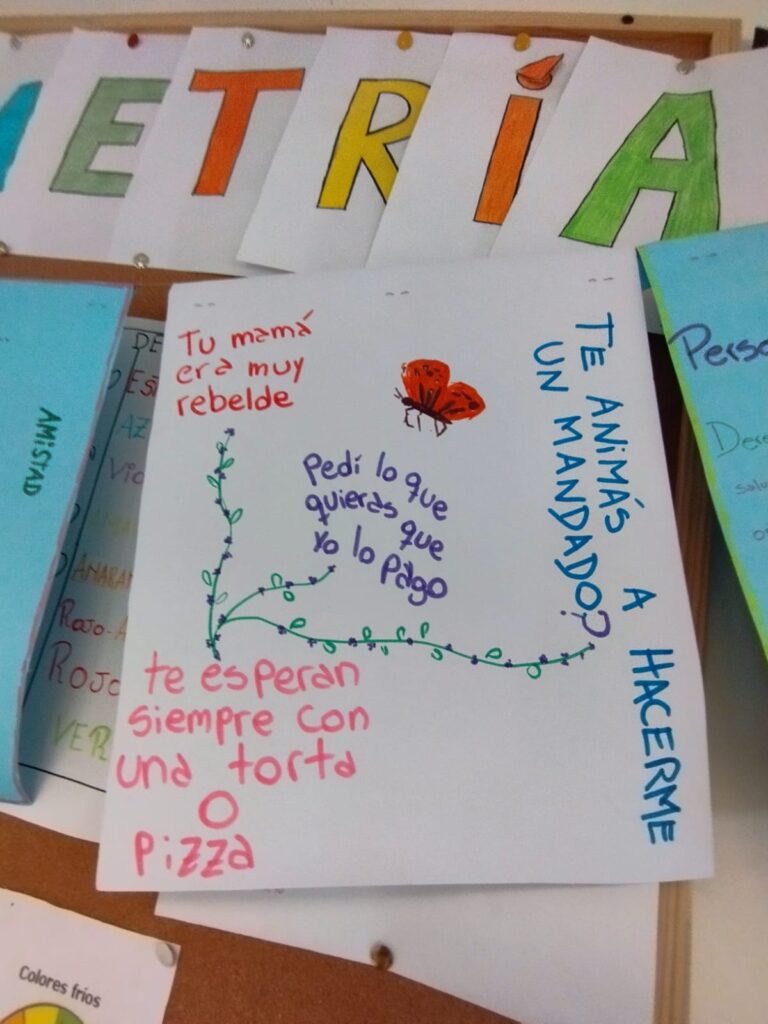 ETRÍA
Tu mamá
era muy
rebelde
Pedí lo que
quieras que
yo lo pago
TE ANIMÁS A HACERME
UN MANDADO?
te esperan
siempre con
una torta
O
pizza
AMISTAD
DE
AZ
VIO
ANARAN
ROJO-A
ROJO
VER
Perso
Dese
salu
Colores fríos